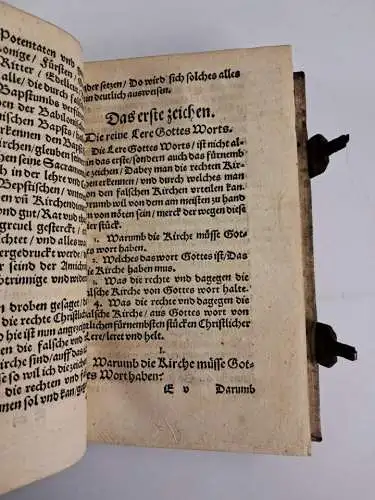 Potentaten und
Könige/ Fürsten/
Ritter/ Edelleut
alle/ die durch
Bapstumbs
den der Babiloni
nischen Bapsts/
erkennen den Bapst
Kirchen/ gleuben
chen seine Sacramen
ch in der lehre und
Bepstischen/ und
en vñ Kirchengut
und gut/ Rat und
greuel gesterckt/
chtet/ und alles
ergedruckt werde/
er seind der Amich
btrünnige und wi
n droben gesaget/
die rechte Christli
d hie ist nun angez
en die falsche und
rche sind/ auff das
so wil ich die zeich
die rechten und f
nnen sol und kan/
der setzen/ Do wird sich solches alles
n deutlich ausweisen.
Das erste zeichen.
Die reine Lere Gottes Worts.
Die Lere Gottes Worts/ ist nicht al-
in das erste/ sondern auch das fürnemb
e zeichen/ Dabey man die rechten Kir-
en erkennen/ und durch welches man
on den falschen Kirchen urteilen kan.
rumb wil von dem am meisten zu hand
n von nöten sein/ merck der wegen diese
ier stück.
1. Warumb die Kirche müsse Got-
s wort haben.
2. Welches das wort Gottes ist/ Das
e Kirche haben mus.
3. Was die rechte und dagegen die
alsche Kirche von Gottes wort halte.
4. Was die rechte und dagegen die
alsche Kirche/ aus Gottes wort von
etlichen fürnembsten stücken Christlicher
Lere/ leret und helt.
1.
Warumb die Kirche müsse Got-
tes Wort haben?
E v Darumb